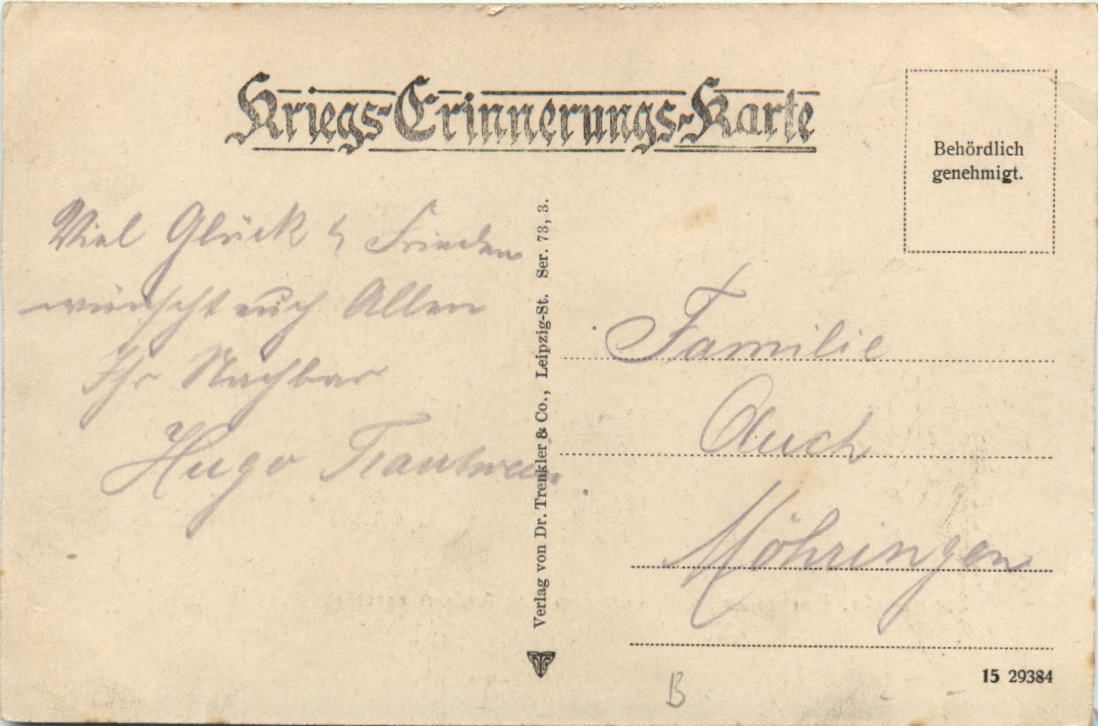 Kriegs-Erinnerungs-Karte
Behördlich
genehmigt.
Viel Glück & Frieden
wünscht euch Allen
Ihr Nachbar
Hugo Trautwein.
Verlag von Dr. Trenkler & Co., Leipzig-St. Ser. 73, 3.
Familie
Auch
Möhringen
15 29384
B